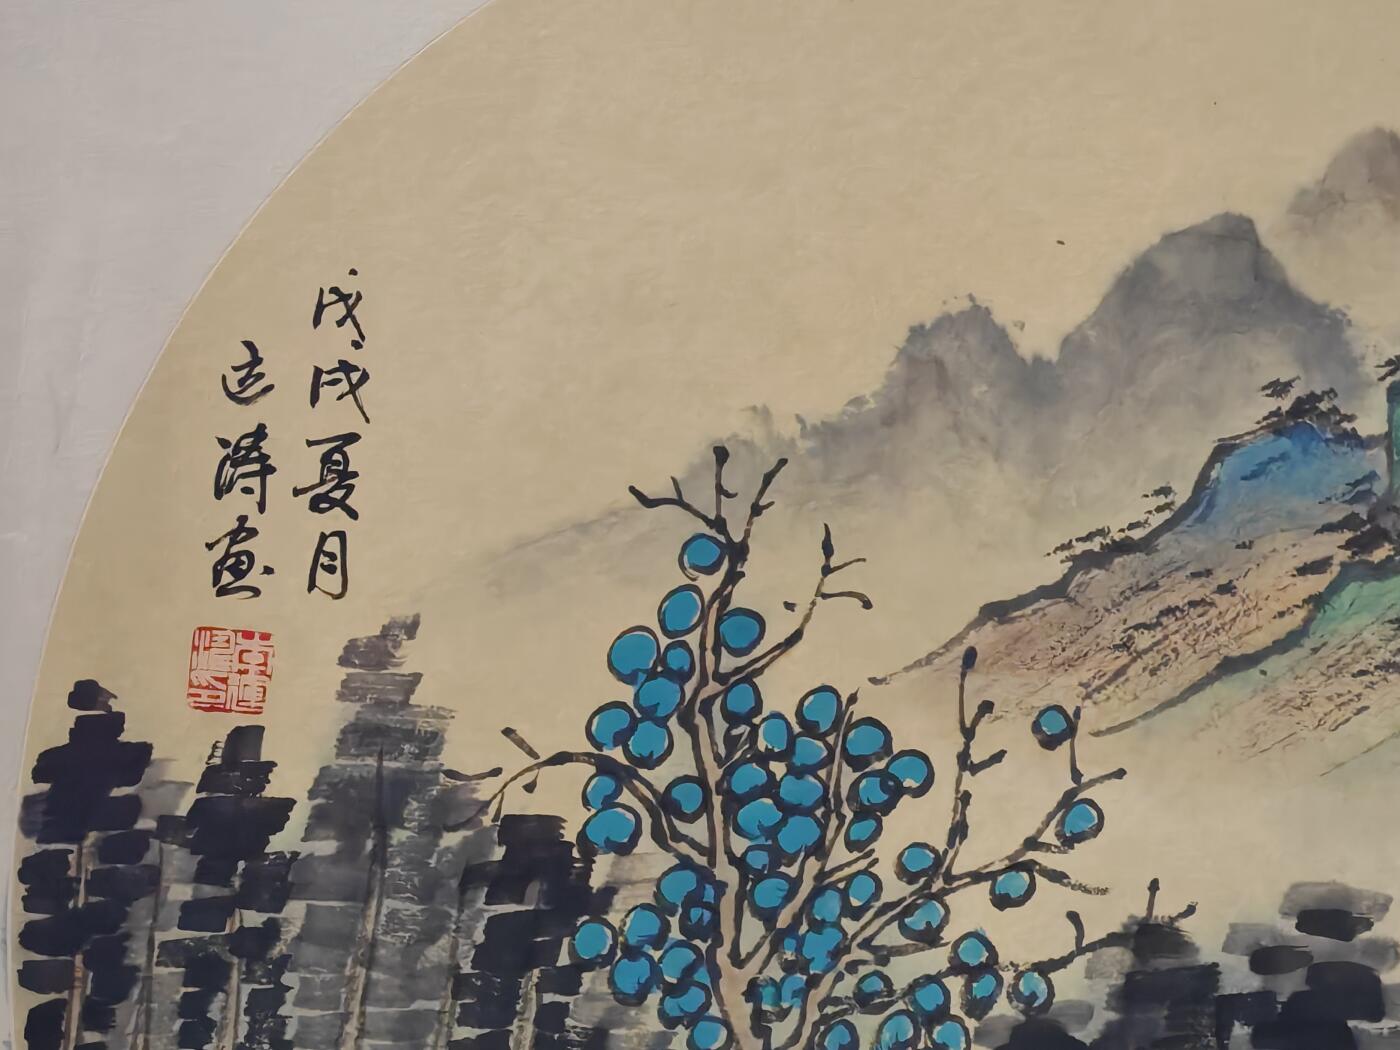 戊戌夏月
志涛画